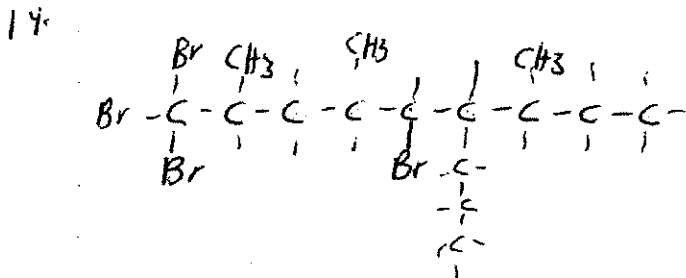 14.
Br CH3 CH3 CH3
Br - C - C - C - C - C - C - C - C - C -
Br Br C -
- C
C -